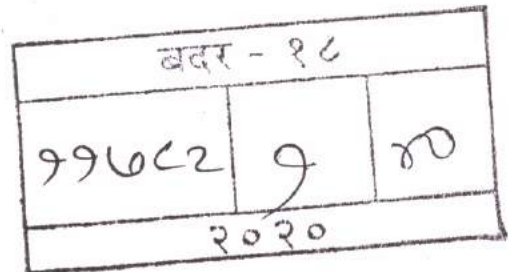 बदर - १८
११७८२ १ ४०
२०२०